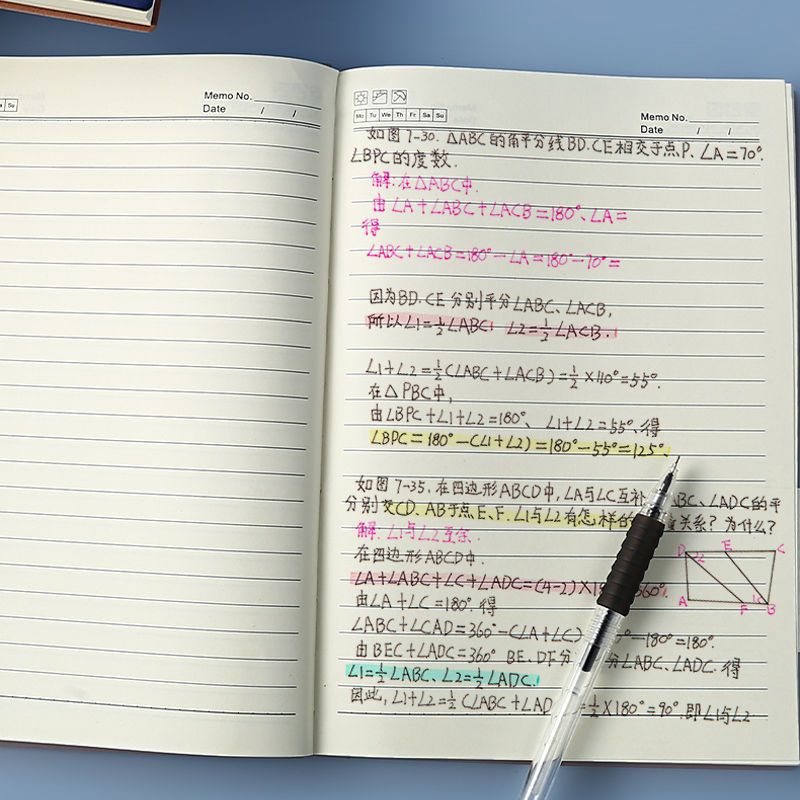 Su
Memo No.
Date / /
Mo Tu We Th Fr Sa Su
Memo No.
Date / /
如图7-30. △ABC的角平分线BD.CE相交于点P、∠A=70°.
∠BPC的度数.
解:在△ABC中.
由∠A+∠ABC+∠ACB=180°、∠A=
得
∠ABC+∠ACB=180°-∠A=180°-70°=
因为BD.CE分别平分∠ABC、∠ACB,
所以∠1=½∠ABC ∠2=½∠ACB.
∠1+∠2=½(∠ABC+∠ACB)=½×110°=55°.
在△PBC中,
由∠BPC+∠1+∠2=180°、∠1+∠2=55°、得
∠BPC=180°-(∠1+∠2)=180°-55°=125°.
如图7-35.在四边形ABCD中,∠A与∠C互补 BC、∠ADC的平
分别交CD.AB于点E、F.∠1与∠2有怎样的 关系?为什么?
解:∠1与∠2互余.
在四边形ABCD中.
D 2 E C
∠A+∠ABC+∠C+∠ADC=(4-2)×18 360°.
A F 1 B
由∠A+∠C=180°.得
∠ABC+∠CAD=360°-(∠A+∠C) °-180°=180°.
由BEC+∠ADC=360° BE、DF分 分∠ABC、∠ADC.得
∠1=½∠ABC、∠2=½∠ADC.
因此,∠1+∠2=½(∠ABC+∠AD =½×180°=90°.即∠1与∠2